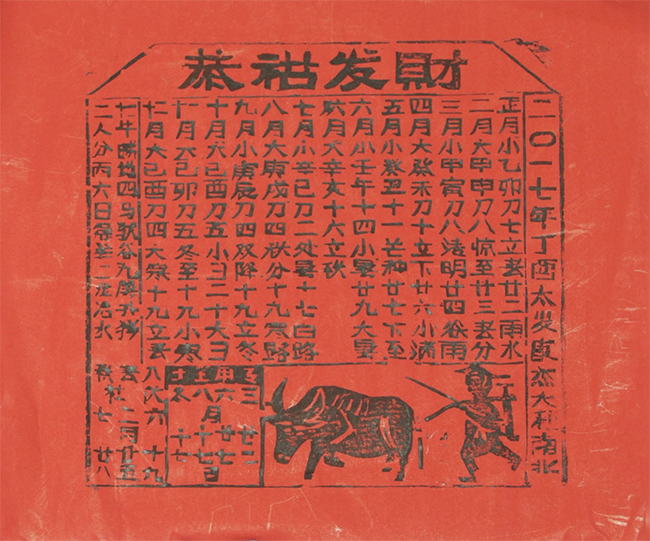 恭祜发財
二〇一七年丁酉太岁 大利南北
正月小乙卯刀七立春廿二雨水
二月大甲申刀八惊至廿三春分
三月小甲寅刀八清明廿四谷雨
四月大癸未刀十立下廿六小满
五月小癸丑十一芒种廿七下至
六月小壬午十四小暑廿九大暑
月大辛亥十六立秋
七月小辛巳刀二处暑十七白路
八月大庚戌刀四秋分十九寒路
九月小庚辰刀四双降十九立冬
十月大己酉刀五小彐二十大彐
十一月大己卯刀五冬至十九小寒
十二月大己酉刀四大寒十九立春
七牛耕地四马驮谷九
二人分丙六日得辛二龙治水
土王用
三 廿二
六月 廿七
八月 十七
冬 十七
八九六 十九
春社二月廿五
秋社七 廿八